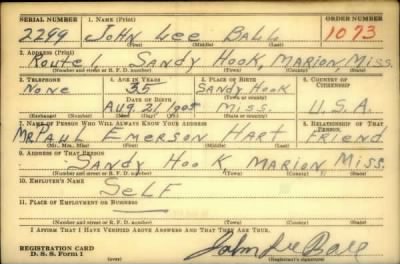 SERIAL NUMBER 1. NAME (Print) ORDER NUMBER
2299 JOHN Lee BALL 1073
(First) (Middle) (Last)
2. ADDRESS (Print)
Route 1, SANDY HOOK, MARION MISS.
(Number and street or R. F. D. number) (Town) (County) (State)
3. TELEPHONE 4. AGE IN YEARS 5. PLACE OF BIRTH 6. COUNTRY OF CITIZENSHIP
None 35 SANDY HOOK
DATE OF BIRTH
AUG. 21 1905 MISS. U.S.A.
(Exchange) (Number) (Mo.) (Day) (Yr.) (State or country)
7. NAME OF PERSON WHO WILL ALWAYS KNOW YOUR ADDRESS 8. RELATIONSHIP OF THAT PERSON
MR. PAUL EMERSON HART FRIEND
(Mr., Mrs., Miss) (First) (Middle) (Last)
9. ADDRESS OF THAT PERSON
SANDY HOOK MARION MISS.
(Number and street or R. F. D. number) (Town) (County) (State)
10. EMPLOYER'S NAME
SeLF
11. PLACE OF EMPLOYMENT OR BUSINESS
(Number and street or R. F. D. number) (Town) (County) (State)
I AFFIRM THAT I HAVE VERIFIED ABOVE ANSWERS AND THAT THEY ARE TRUE.
REGISTRATION CARD
D. S. S. Form 1 John Lee Ball
(Registrant's signature)